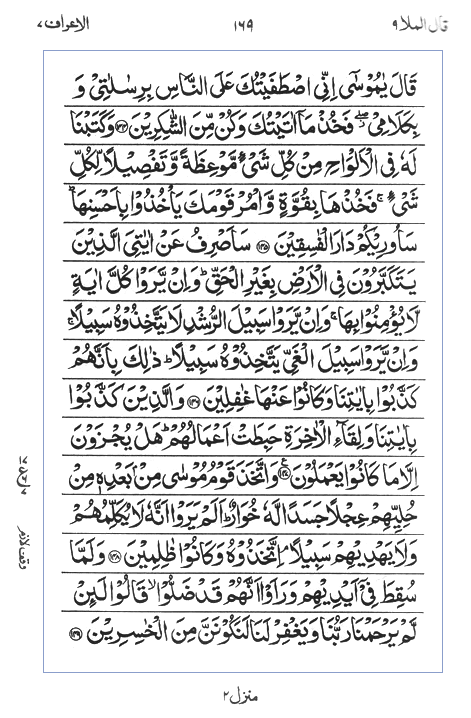 قال الملا ٩ ١٦٩ الاعراف ٧
قَالَ يٰمُوْسٰۤى اِنِّى اصْطَفَيْتُكَ عَلَى النَّاسِ بِرِسٰلٰتِىْ وَ
بِكَلَامِىْ ۖ فَخُذْ مَاۤ اٰتَيْتُكَ وَكُنْ مِّنَ الشّٰكِرِيْنَ ﴿۱۴۴﴾ وَكَتَبْنَا
لَهٗ فِى الْاَلْوَاحِ مِنْ كُلِّ شَىْءٍ مَّوْعِظَةً وَّتَفْصِيْلًا لِّكُلِّ
شَىْءٍ ۚ فَخُذْهَا بِقُوَّةٍ وَّاْمُرْ قَوْمَكَ يَاْخُذُوْا بِاَحْسَنِهَا ؕ
سَاُورِيْكُمْ دَارَ الْفٰسِقِيْنَ ﴿۱۴۵﴾ سَاَصْرِفُ عَنْ اٰيٰتِىَ الَّذِيْنَ
يَتَكَبَّرُوْنَ فِى الْاَرْضِ بِغَيْرِ الْحَقِّ ؕ وَاِنْ يَّرَوْا كُلَّ اٰيَةٍ
لَّا يُؤْمِنُوْا بِهَا ۚ وَاِنْ يَّرَوْا سَبِيْلَ الرُّشْدِ لَا يَتَّخِذُوْهُ سَبِيْلًا ۚ
وَاِنْ يَّرَوْا سَبِيْلَ الْغَىِّ يَتَّخِذُوْهُ سَبِيْلًا ؕ ذٰلِكَ بِاَنَّهُمْ
كَذَّبُوْا بِاٰيٰتِنَا وَكَانُوْا عَنْهَا غٰفِلِيْنَ ﴿۱۴۶﴾ وَالَّذِيْنَ كَذَّبُوْا
بِاٰيٰتِنَا وَلِقَآءِ الْاٰخِرَةِ حَبِطَتْ اَعْمَالُهُمْ ؕ هَلْ يُجْزَوْنَ
اِلَّا مَا كَانُوْا يَعْمَلُوْنَ ﴿۱۴۷﴾ وَاتَّخَذَ قَوْمُ مُوْسٰى مِنْۢ بَعْدِهٖ مِنْ
حُلِيِّهِمْ عِجْلًا جَسَدًا لَّهٗ خُوَارٌ ؕ اَلَمْ يَرَوْا اَنَّهٗ لَا يُكَلِّمُهُمْ
وَلَا يَهْدِيْهِمْ سَبِيْلًا ۘ اِتَّخَذُوْهُ وَكَانُوْا ظٰلِمِيْنَ ﴿۱۴۸﴾ وَلَمَّا
سُقِطَ فِىْۤ اَيْدِيْهِمْ وَرَاَوْا اَنَّهُمْ قَدْ ضَلُّوْا ۙ قَالُوْا لَئِنْ
لَّمْ يَرْحَمْنَا رَبُّنَا وَيَغْفِرْ لَنَا لَنَكُوْنَنَّ مِنَ الْخٰسِرِيْنَ ﴿۱۴۹﴾
وقف لازم
منزل ٢